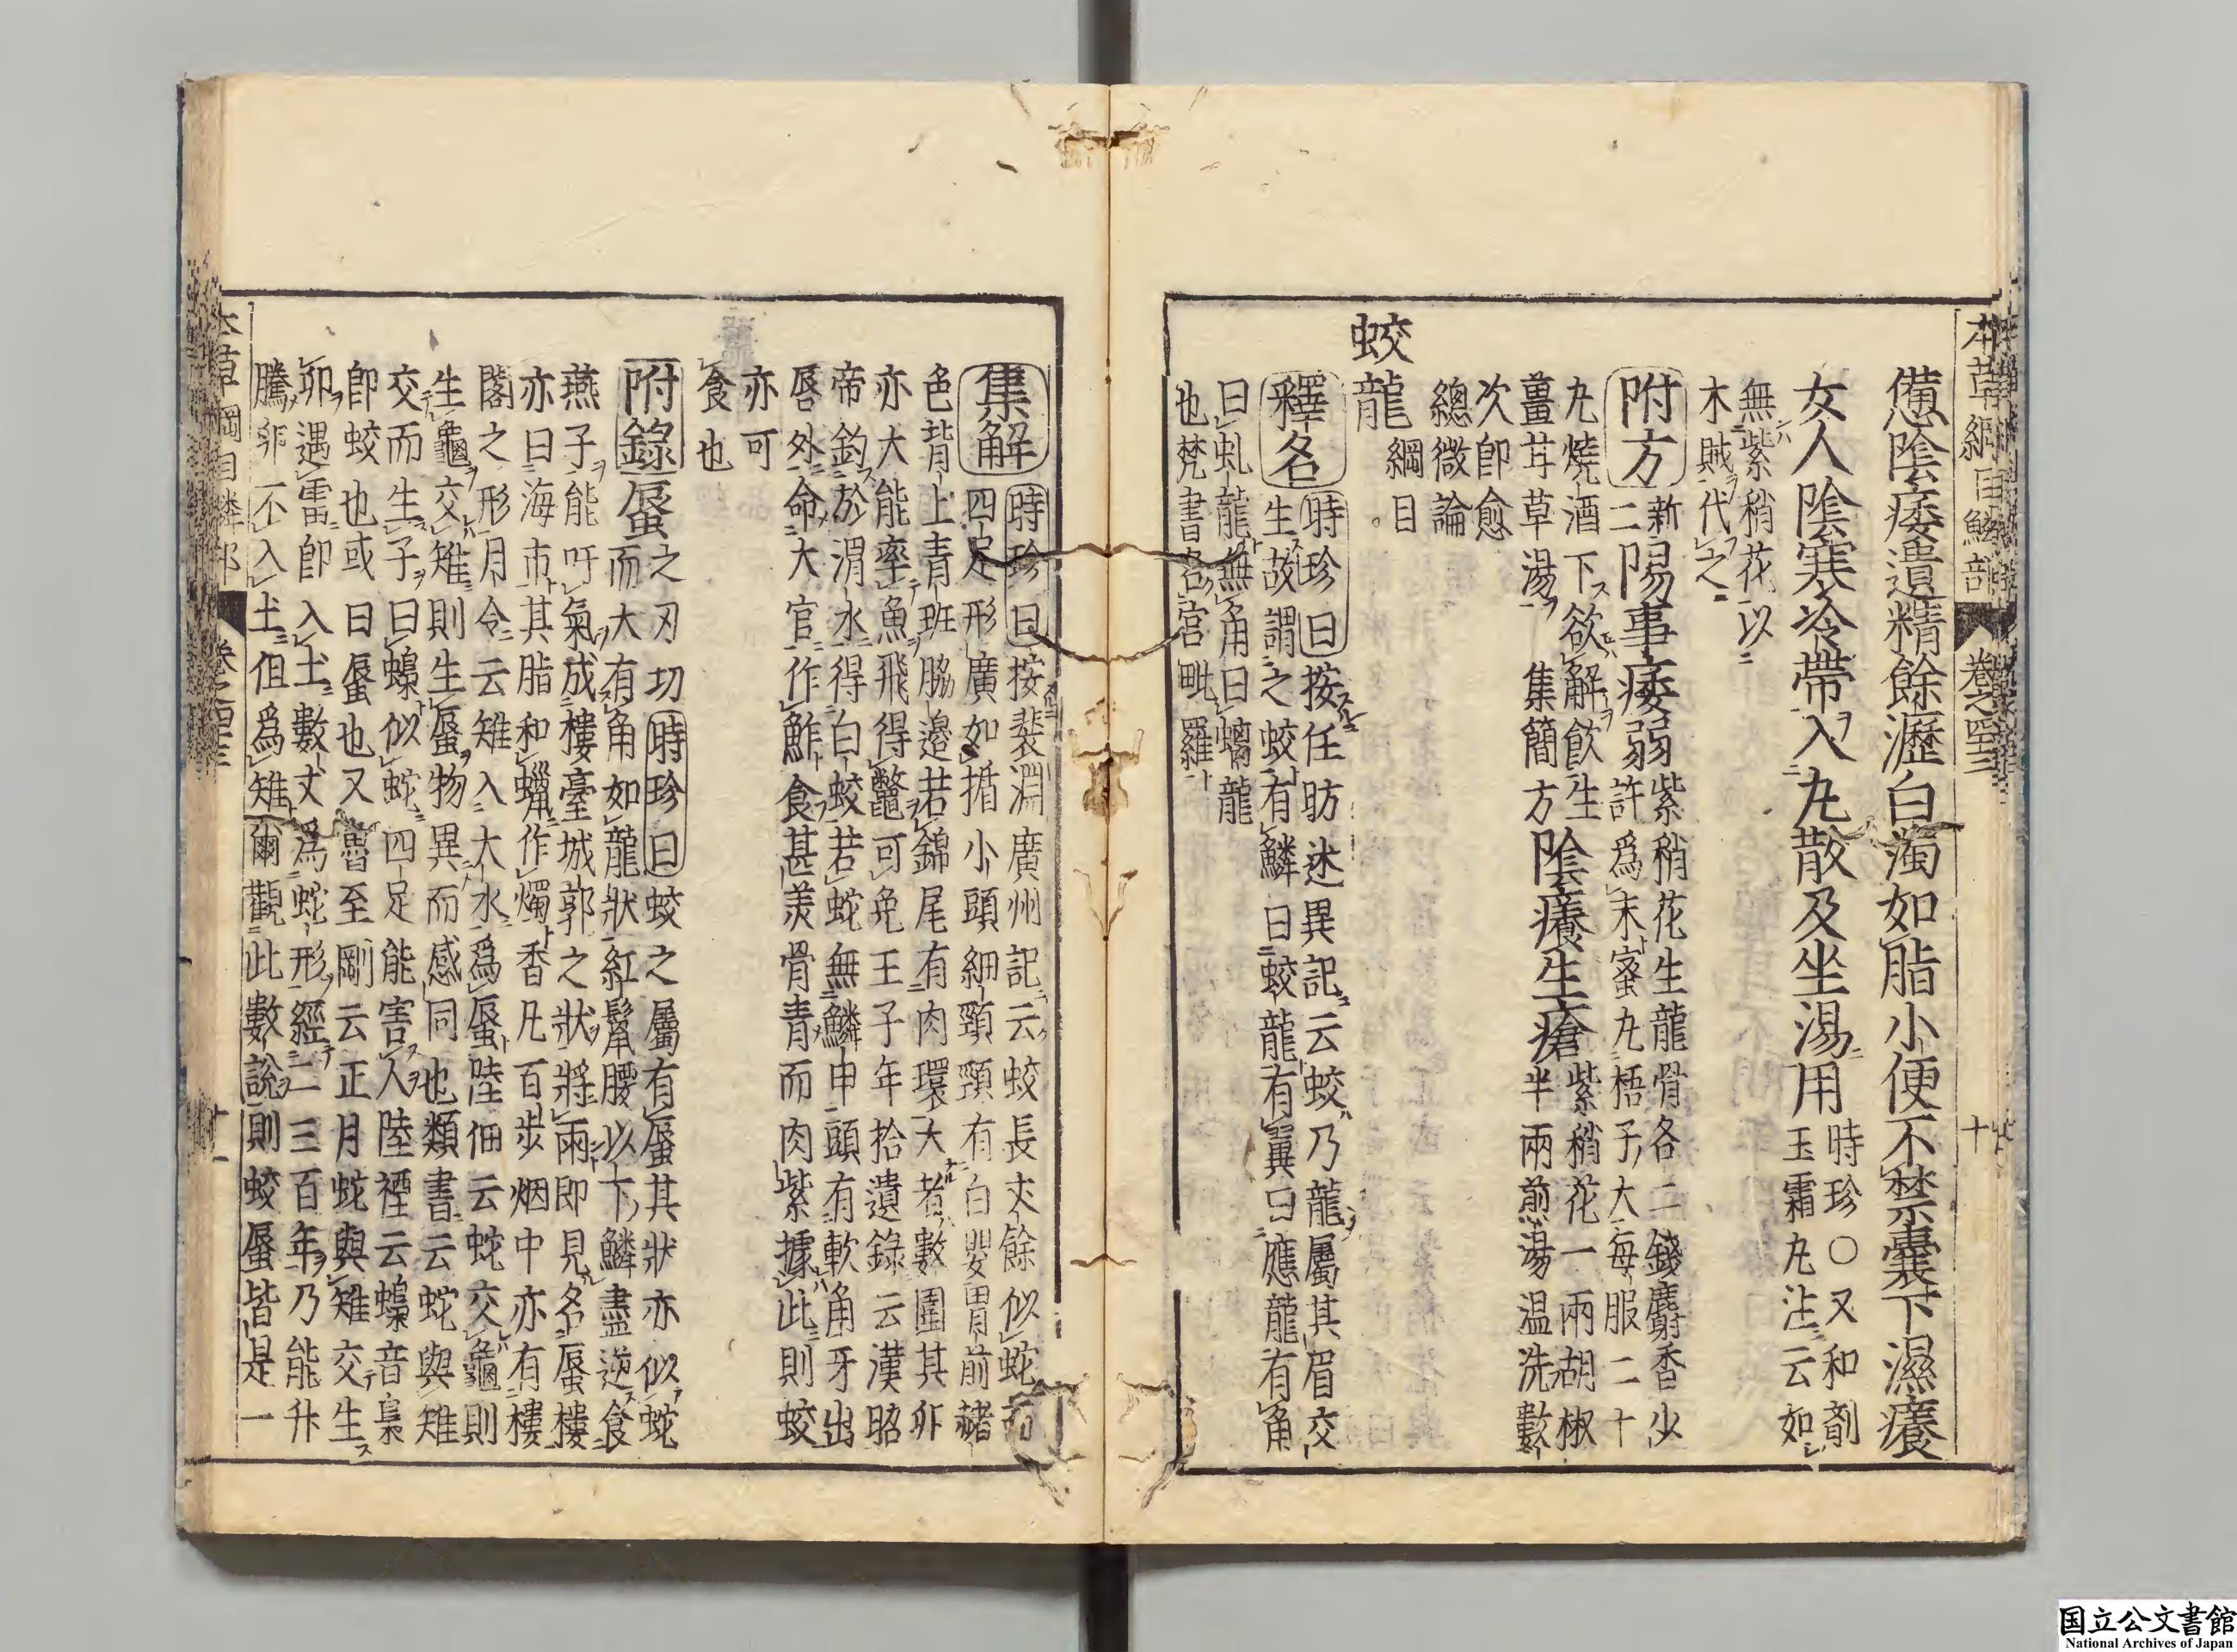 本草綱目鱗部 卷之四十三 十
憊陰痿遺精餘瀝白濁如脂小便不禁囊下濕癢
女人陰寒冷帶入丸散及坐湯用時珍○又和劑
玉霜丸注云如
無紫稍花以
木賊代之
附方新二陽事痿弱紫稍花生龍骨各二錢麝香少
許爲末蜜丸梧子大每服二十
丸燒酒下欲解飲生
薑甘草湯 集簡方陰癢生瘡紫稍花一兩胡椒
半兩煎湯温洗數
次卽愈
總微論
蛟龍綱目
釋名時珍曰按任昉述異記云蛟乃龍屬其眉交
生故謂之蛟有鱗曰蛟龍有翼曰應龍有角
曰虬龍無角曰螭龍
也梵書名宮毗羅
集解時珍曰按裴淵廣州記云蛟長丈餘似蛇而
四足形廣如楯小頭細頸頸有白嬰胷前赭
色背上青班脇邊若錦尾有肉環大者數圍其卵
亦大能率魚飛得鼈可免王子年拾遺錄云漢昭
帝釣於渭水得白蛟若蛇無鱗甲頭有軟角牙出
唇外命大官作鮓食甚美骨青而肉紫據此則蛟
亦可
食也
附錄蜃之刃切時珍曰蛟之屬有蜃其狀亦似蛇
而大有角如龍狀紅鬛腰以下鱗盡逆食
燕子能吁氣成樓臺城郭之狀將雨卽見名蜃樓
亦曰海市其脂和蠟作燭香凡百步烟中亦有樓
閣之形月令云雉入大水爲蜃陸佃云蛇交龜則
生龜交雉則生蜃物異而感同也類書云蛇與雉
交而生子曰蟂似蛇四足能害人陸禋云蟂音梟
卽蛟也或曰蜃也又魯至剛云正月蛇與雉交生
卵遇雷卽入土數丈爲蛇形經二三百年乃能升
騰卵不入土但爲雉爾觀此數說則蛟蜃皆是一
本草綱目鱗部 卷之四十三 十一
国立公文書館
National Archives of Japan